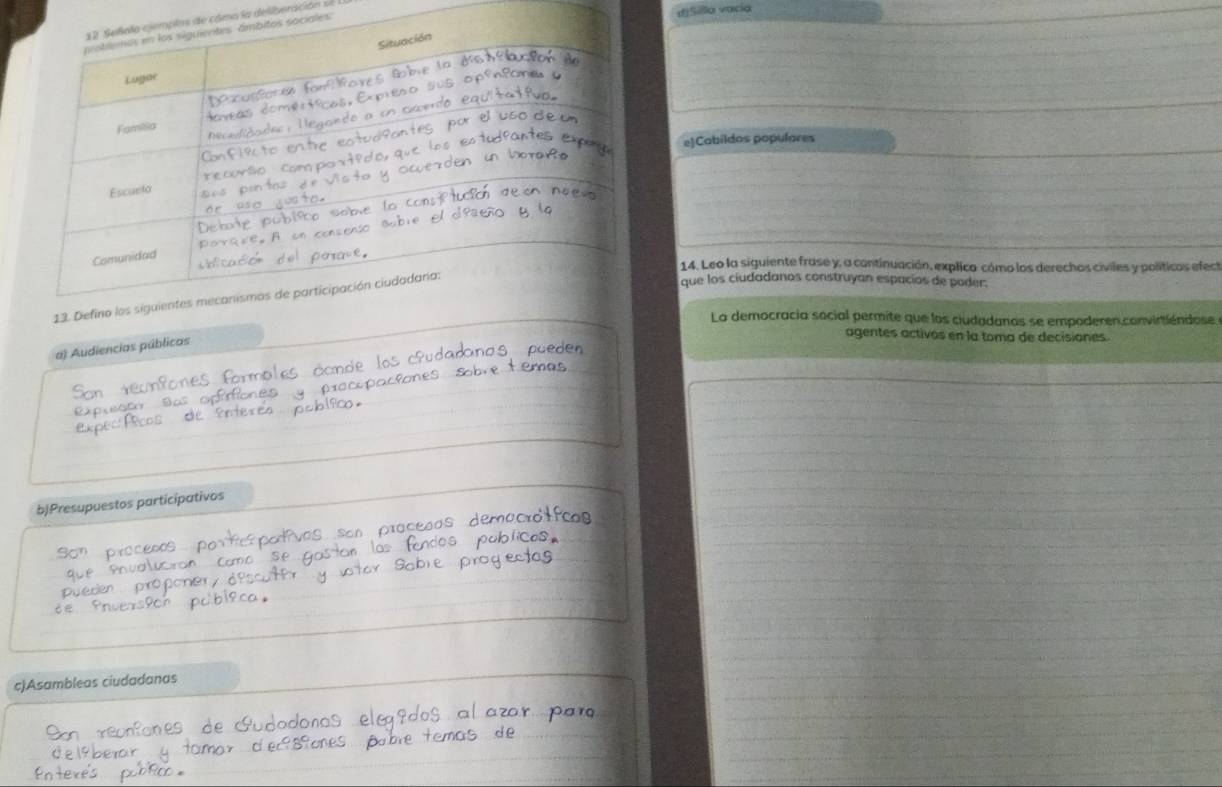 12. Señalo ejemplos de cómo la deliberación se
problemas en los siguientes ámbitos sociales:
Lugar
Situación
Familia
Discusiones familiares sobre la de
tareas domésticas. Expreso sus opiniones y
necesidades, llegando a un acuerdo equitativo.
Escuela
Conflicto entre estudiantes por el uso de un
recurso compartido, que los estudiantes
sus puntos de vista y acuerden un horario
de uso justo.
Comunidad
Debate público sobre la de un nuevo
parque. A un consenso sobre el diseño y la
del parque.
13. Defino los siguientes mecanismos de participación ciudadana:
a) Audiencias públicas
Son reuniones formales donde los ciudadanos pueden
expresar sus opiniones y procupaciones sobre temas
expecificos de interés público.
b)Presupuestos participativos
son procesos participativos son procesos democróticos
que involucran como se gastan los fondos publicos.
pueden proponer, discutir y votar sobre proyectos
de inversión pública.
c)Asambleas ciudadanas
Son reuniones de ciudadanos elegidos al azar para
deliberar y tomar decisiones sobre temas de
interés público.
d)Silla vacía
e)Cabildos populares
14. Leo la siguiente frase y, a continuación, explico cómo los derechos civiles y políticos efect
que los ciudadanos construyan espacios de poder:
La democracia social permite que los ciudadanos se empoderen convirtiéndose
agentes activos en la toma de decisiones.